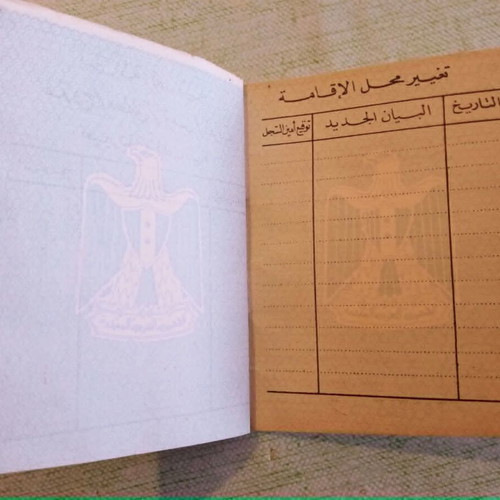 تغيير محل الإقامة
التاريخ
البيان الجديد
توقيع أمين السجل